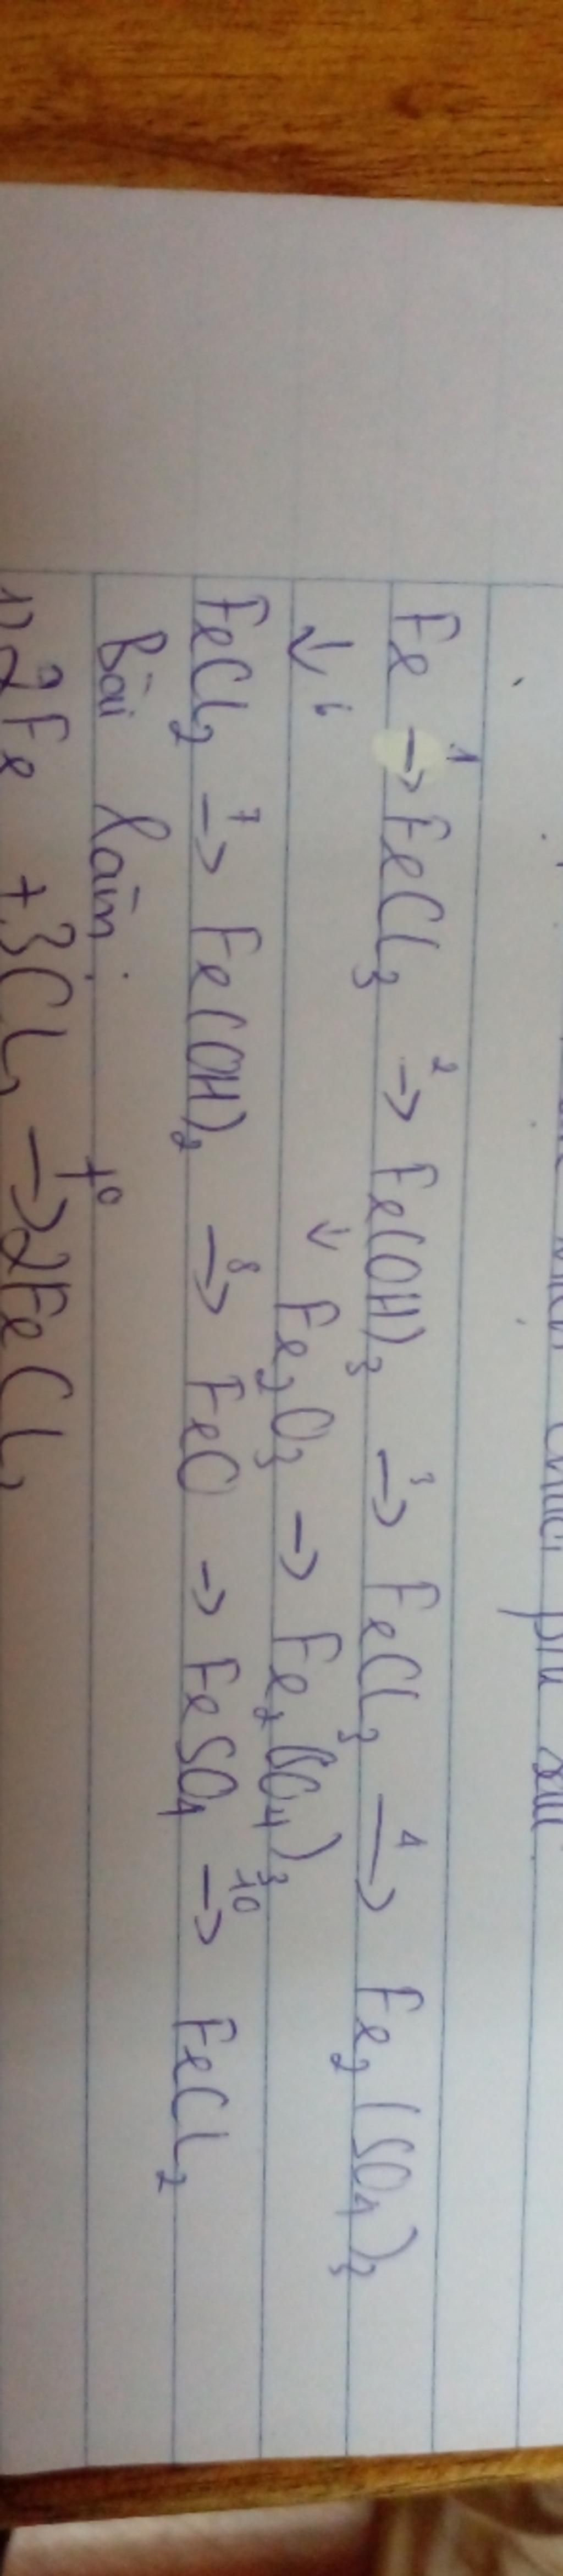 Fe →¹ FeCl₃ →² Fe(OH)₃ →³ FeCl₃ →⁴ Fe₂(SO₄)₃
↓⁶ ↓ Fe₂O₃ → Fe₂(SO₄)₃
FeCl₂ →⁷ Fe(OH)₂ →⁸ FeO → FeSO₄ →¹⁰ FeCl₂
Bài làm:
1) 2Fe + 3Cl₂ →t⁰ 2FeCl₃